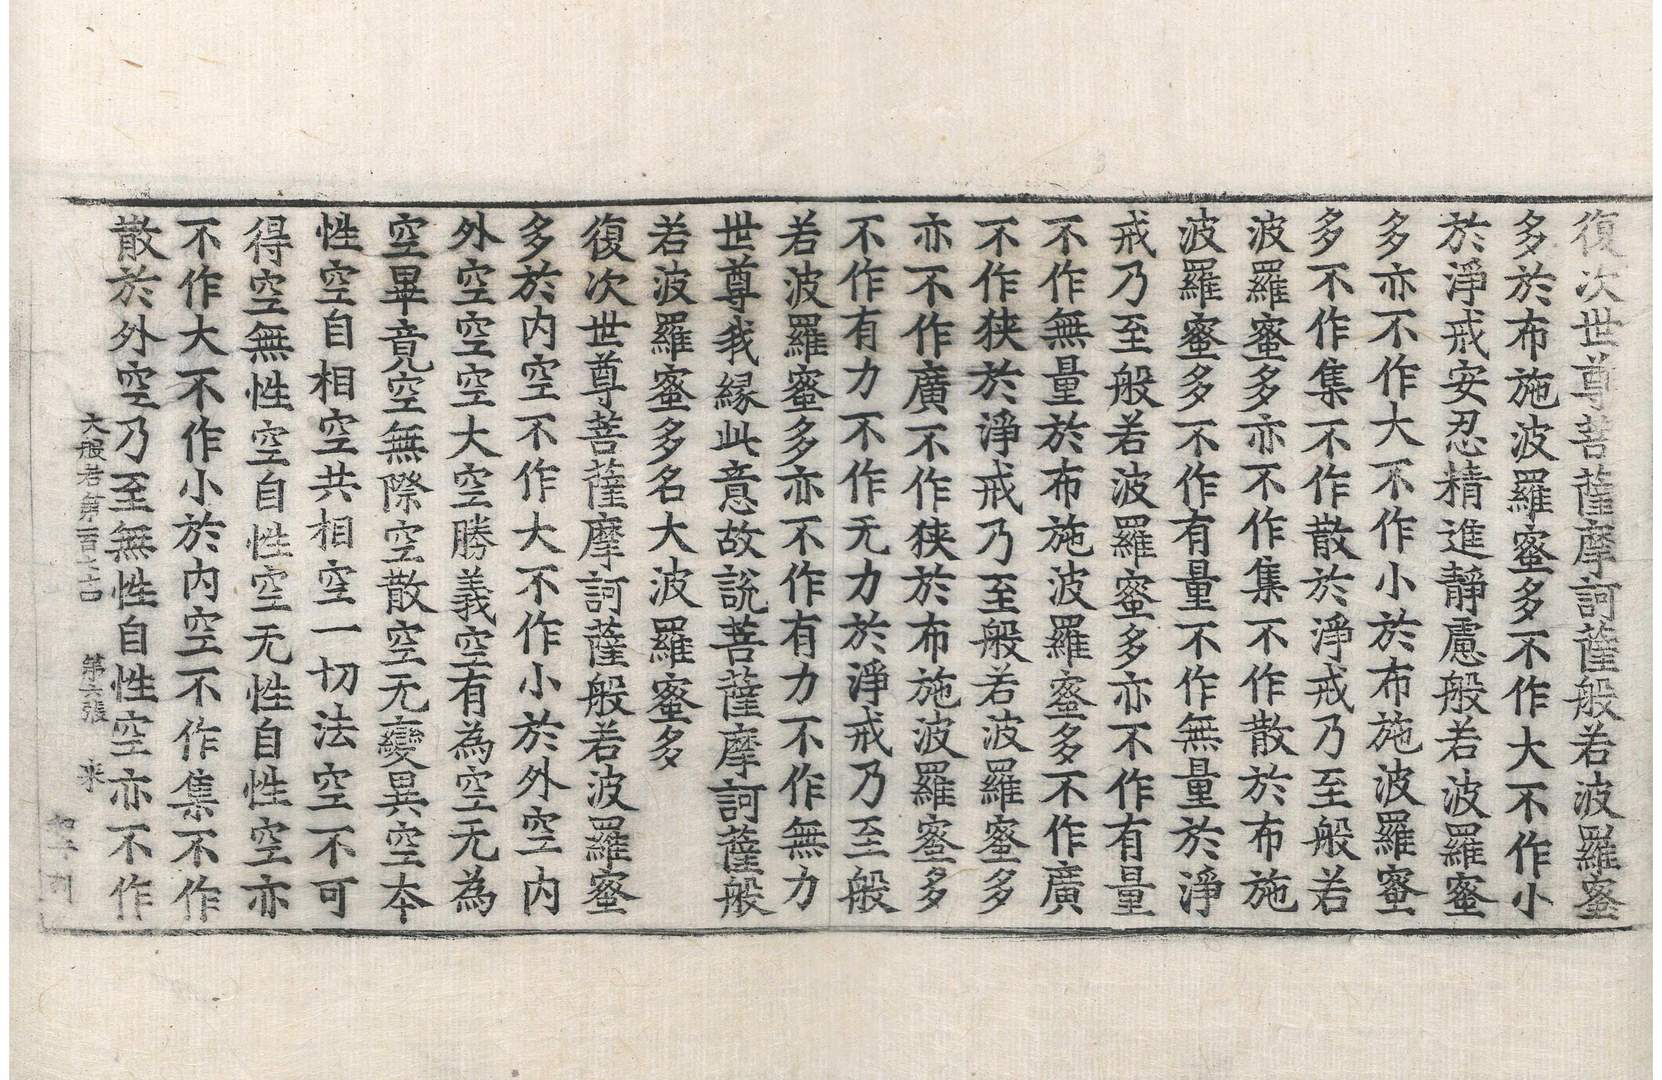 復次世尊菩薩摩訶薩般若波羅蜜
多於布施波羅蜜多不作大不作小
於淨戒安忍精進靜慮般若波羅蜜
多亦不作大不作小於布施波羅蜜
多不作集不作散於淨戒乃至般若
波羅蜜多亦不作集不作散於布施
波羅蜜多不作有量不作無量於淨
戒乃至般若波羅蜜多亦不作有量
不作無量於布施波羅蜜多不作廣
不作狹於淨戒乃至般若波羅蜜多
亦不作廣不作狹於布施波羅蜜多
不作有力不作无力於淨戒乃至般
若波羅蜜多亦不作有力不作無力
世尊我緣此意故說菩薩摩訶薩般
若波羅蜜多名大波羅蜜多
復次世尊菩薩摩訶薩般若波羅蜜
多於内空不作大不作小於外空内
外空空空大空勝義空有為空无為
空畢竟空無際空散空无變異空本
性空自相空共相空一切法空不可
得空無性空自性空无性自性空亦
不作大不作小於内空不作集不作
散於外空乃至無性自性空亦不作
大般若第一百七十四 第六張 来